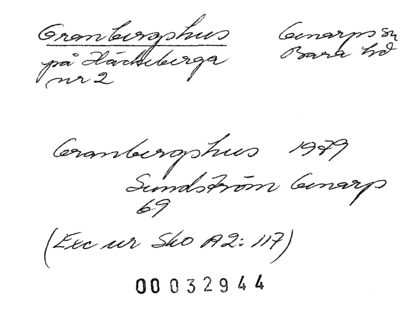 Granbergshus Genarps sn
på Häckeberga Bara hd
nr 2
Granbergshus 1979
Sundström Genarp
69
(Exc ur Sko A2: 117)
00032944